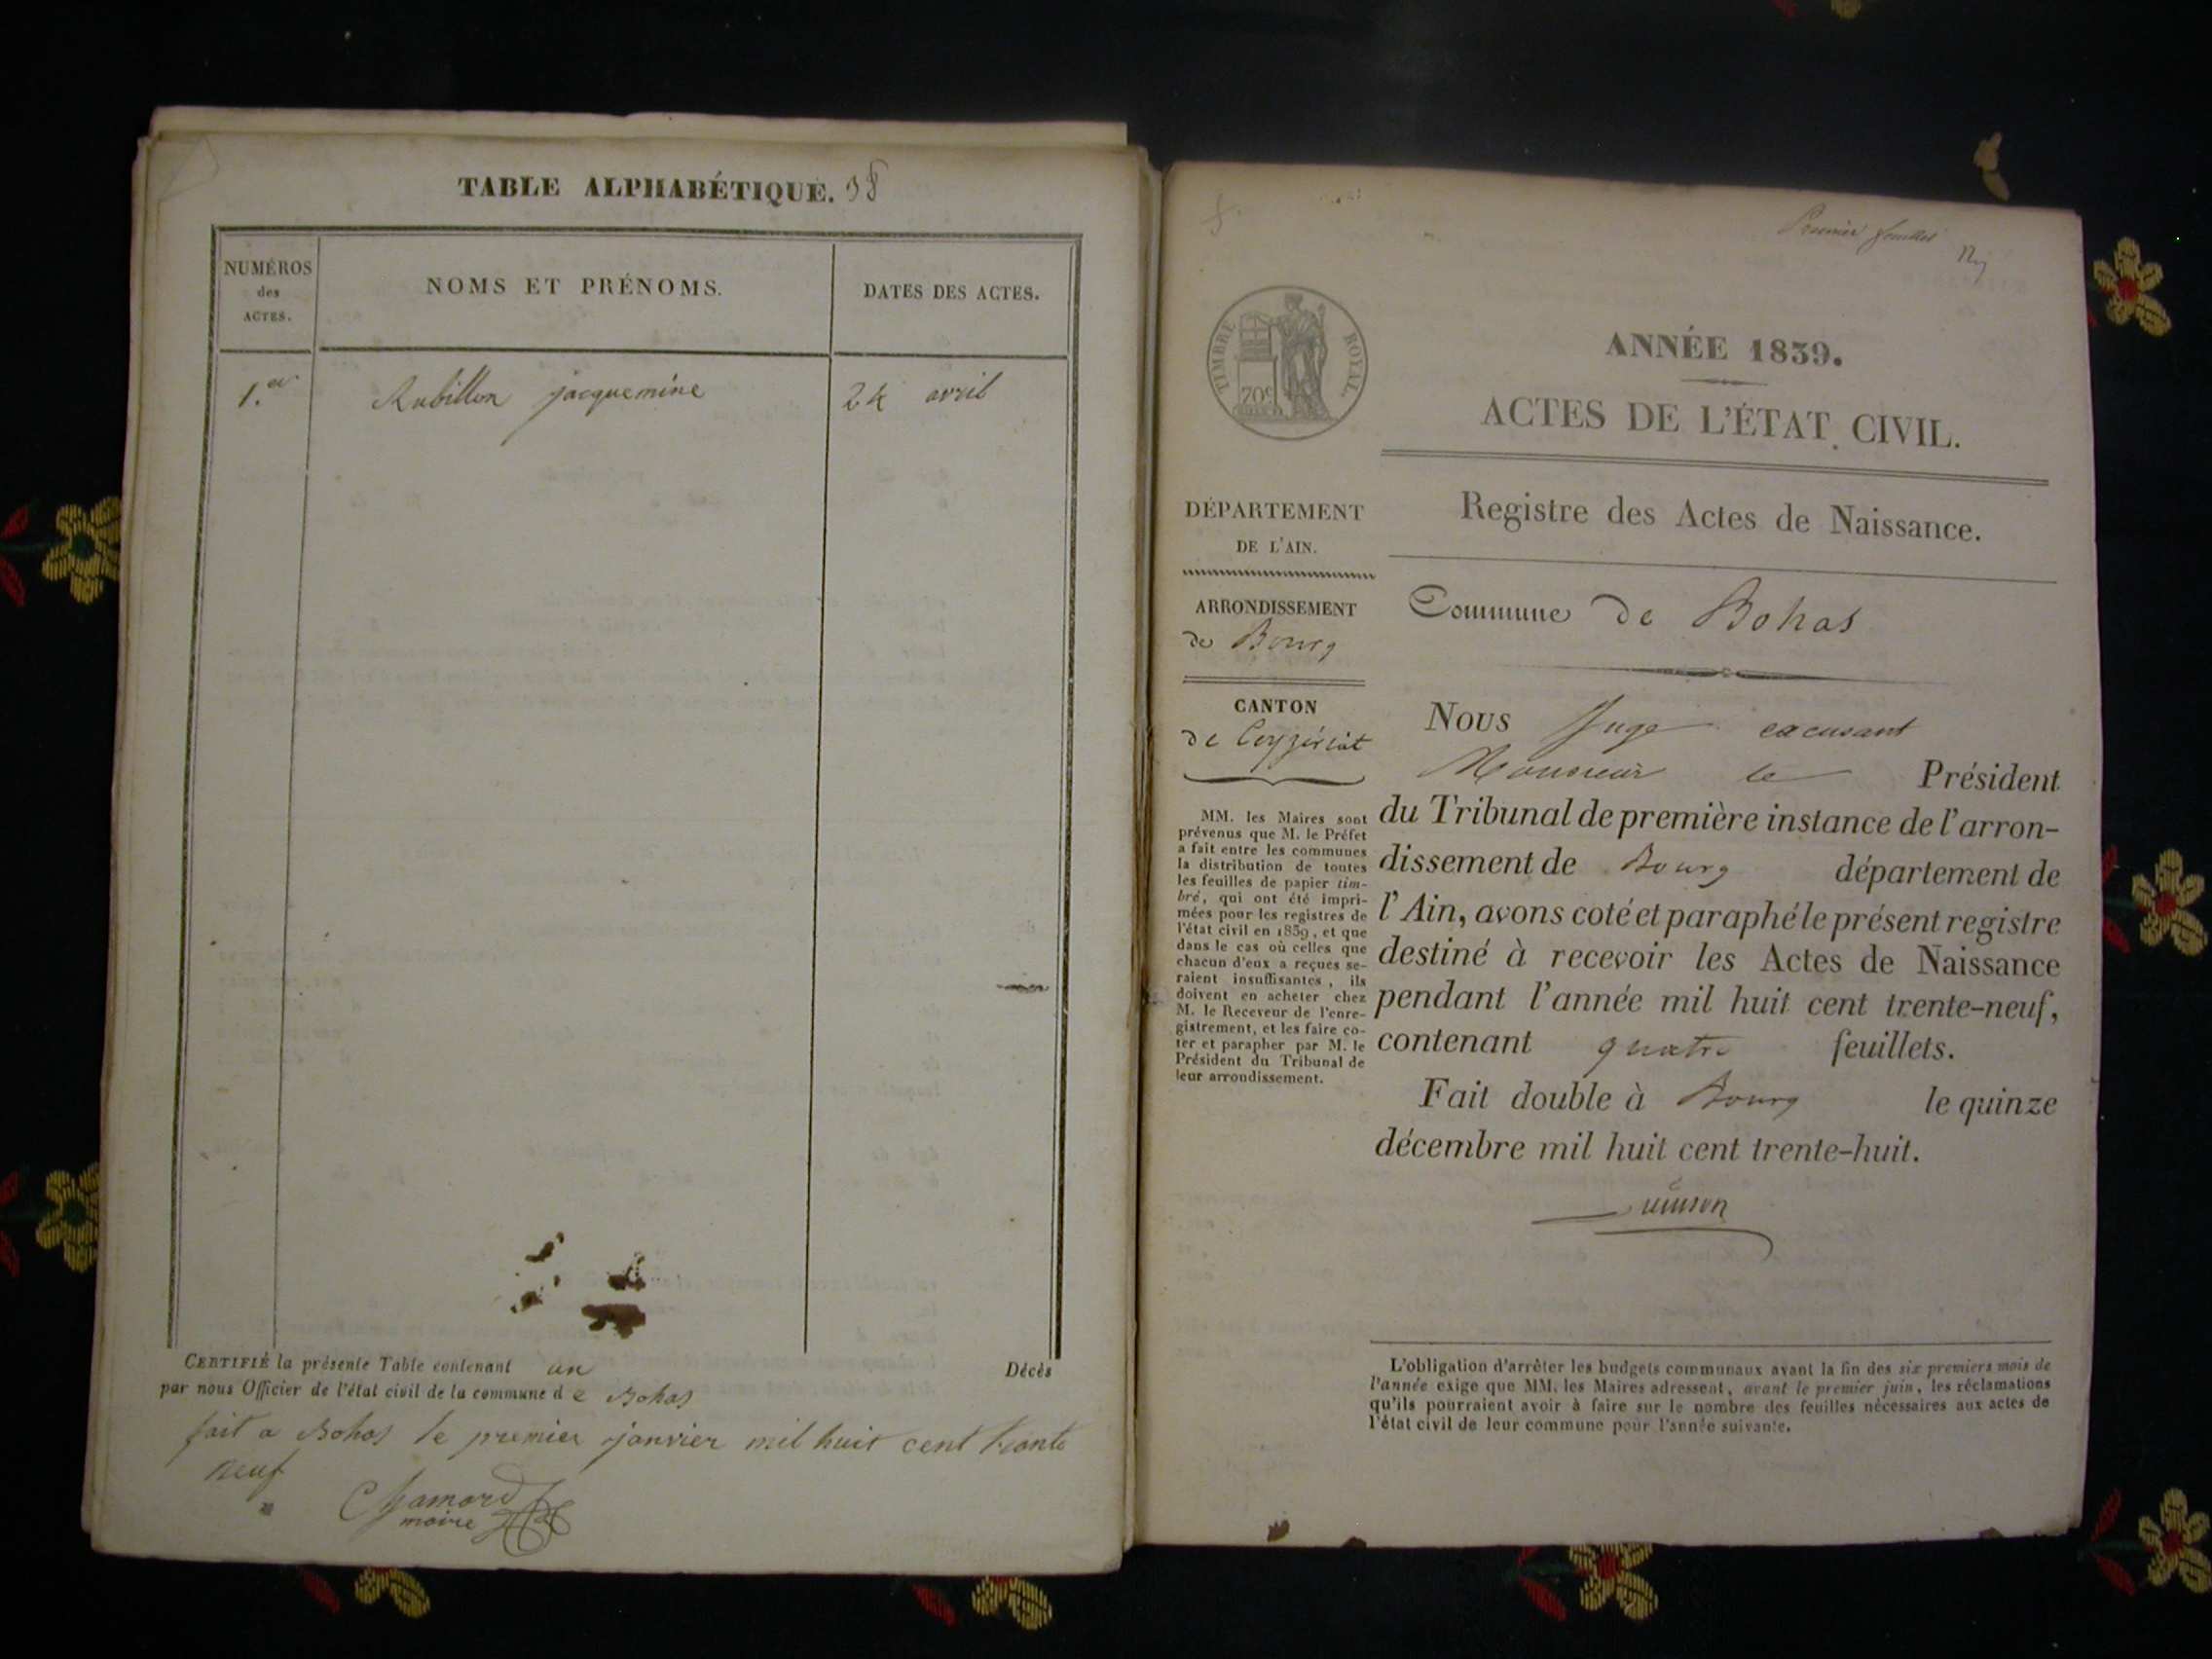 TABLE ALPHABÉTIQUE. 38
NUMÉROS
des
ACTES.
NOMS ET PRÉNOMS.
DATES DES ACTES.
1.er Rubillon jacquemine 24 avril
CERTIFIÉ la présente Table contenant un Décès
par nous Officier de l'état civil de la commune d e Bohas
fait a Bohas le premier janvier mil huit cent trente
neuf
Chamard
maire
Premier feuillet
TIMBRE ROYAL
70c
ANNÉE 1839.
ACTES DE L'ÉTAT CIVIL.
DÉPARTEMENT
DE L'AIN.
ARRONDISSEMENT
de Bourg
CANTON
de Ceyzériat
MM. les Maires sont
prévenus que M. le Préfet
a fait entre les communes
la distribution de toutes
les feuilles de papier tim-
bré, qui ont été impri-
mées pour les registres de
l'état civil en 1839, et que
dans le cas où celles que
chacun d'eux a reçues se-
raient insuffisantes, ils
doivent en acheter chez
M. le Receveur de l'enre-
gistrement, et les faire co-
ter et parapher par M. le
Président du Tribunal de
leur arrondissement.
Registre des Actes de Naissance.
Commune de Bohas
Nous Juge excusant
Monsieur le Président
du Tribunal de première instance de l'arron-
dissement de Bourg département de
l'Ain, avons coté et paraphé le présent registre
destiné à recevoir les Actes de Naissance
pendant l'année mil huit cent trente-neuf,
contenant quatre feuillets.
Fait double à Bourg le quinze
décembre mil huit cent trente-huit.
L'obligation d'arrêter les budgets communaux avant la fin des six premiers mois de
l'année exige que MM. les Maires adressent, avant le premier juin, les réclamations
qu'ils pourraient avoir à faire sur le nombre des feuilles nécessaires aux actes de
l'état civil de leur commune pour l'année suivante.